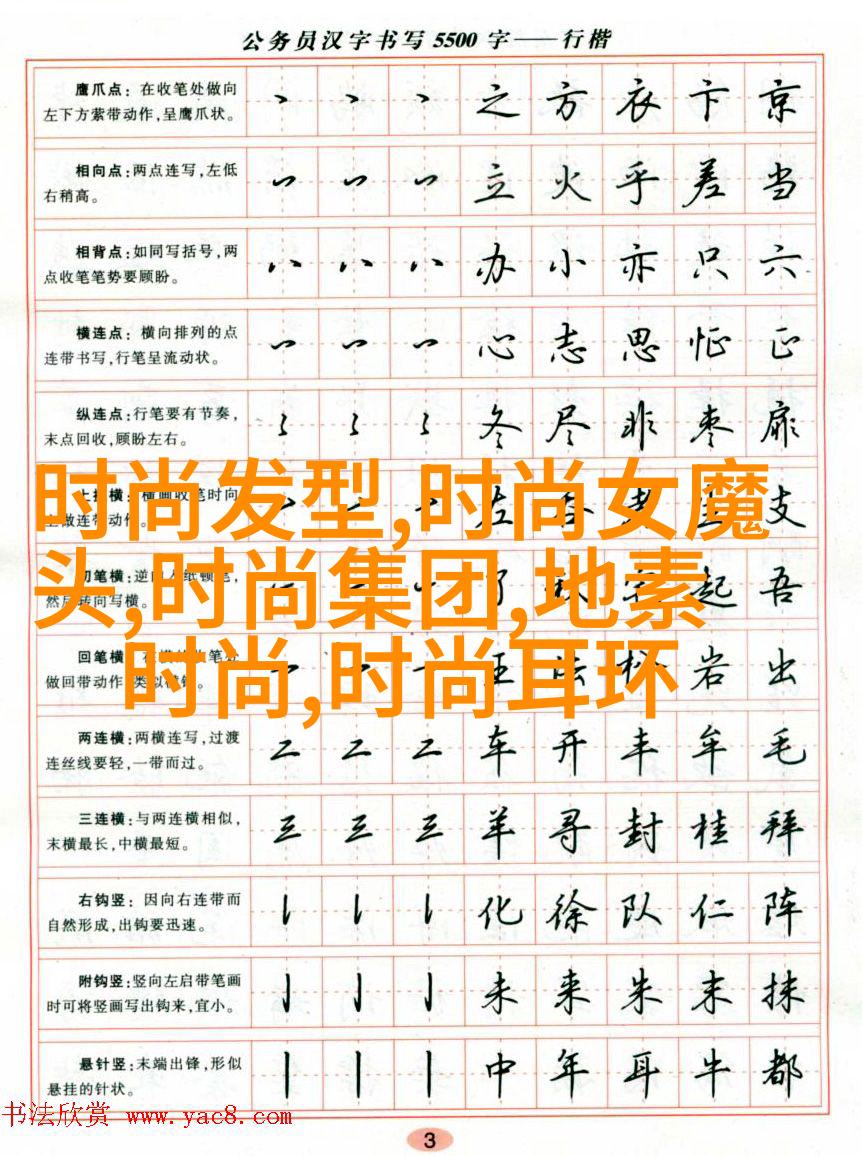 公务员汉字书写5500字——行楷
鹰爪点：在收笔处做向
左下方萦带动作,呈鹰爪状。
丶 丶 丶 之 方 衣 卞 京
相向点：两点连写,左低
右稍高。
立 火 乎 差 当
相背点：如同写括号,两
点收笔笔势要顾盼。
办 小 亦 只 六
横连点：横向排列的点
连带书写,行笔呈流动状。
心 志 思 怔 正
纵连点：行笔要有节奏,
末点回收,顾盼左右。
冬 尽 非 枣 扉
时尚发型,时尚女魔
头,时尚集团,地素
时尚,时尚耳环
横画收笔时向
支
切笔横：逆
起 吾
回笔横
做回带动作
岩 出
两连横：两横连写,过渡
连丝线要轻,一带而过。
车 开 丰 牟 毛
三连横：与两连横相似,
末横最长,中横最短。
羊 寻 封 桂 拜
右钩竖：因向右连带而
自然形成,出钩要迅速。
化 徐 队 仁 阵
附钩竖：竖向左启带笔画
时可将竖画写出钩来,宜小。
未 来 朱 末 抹
悬针竖：末端出锋,形似
悬挂的针状。
中 年 耳 牛 都
书法欣赏 www.yac8.com
3